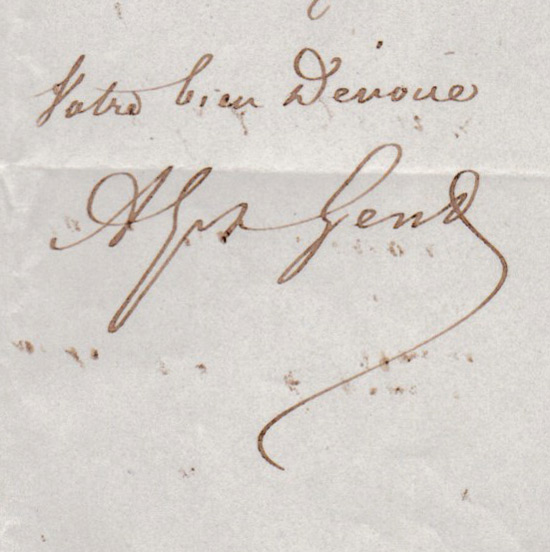 Votre bien Dévoué
Alph Gent